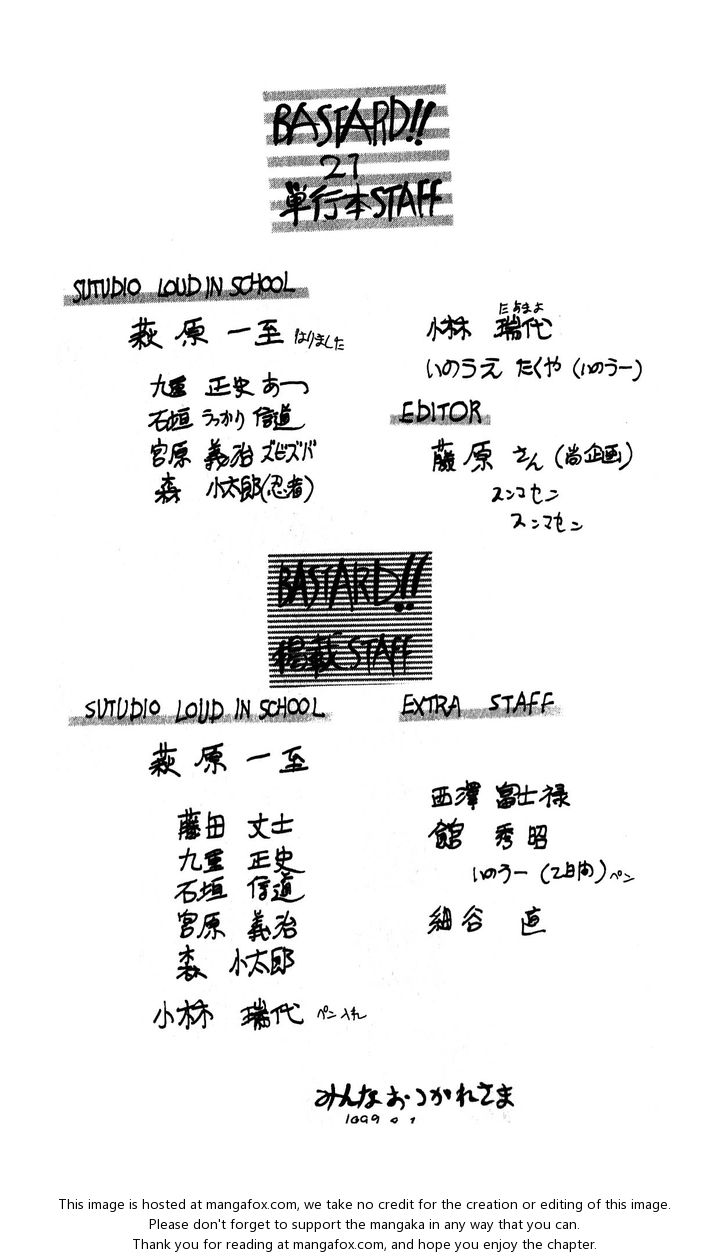 BASTARD!!
21
単行本STAFF
SUTUDIO LOUD IN SCHOOL
萩原 一至 はりました
九重 正史 あーつ
石垣 うっかり 信道
宮原 義治 ズビズバ
森 小太郎(忍者)
小林 瑞代
いのうえ たくや (いのうー)
EDITOR
藤原 さん (尚企画)
スンマセン
スンマセン
BASTARD!!
掲載STAFF
SUTUDIO LOUD IN SCHOOL
萩原 一至
藤田 丈士
九重 正史
石垣 信道
宮原 義治
森 小太郎
小林 瑞代 ペン入れ
EXTRA STAFF
西澤 富士禄
館 秀昭
いのうー (2日間) ペン
細谷 直
みんなおつかれさま
This image is hosted at mangafox.com, we take no credit for the creation or editing of this image.
Please don't forget to support the mangaka in any way that you can.
Thank you for reading at mangafox.com, and hope you enjoy the chapter.